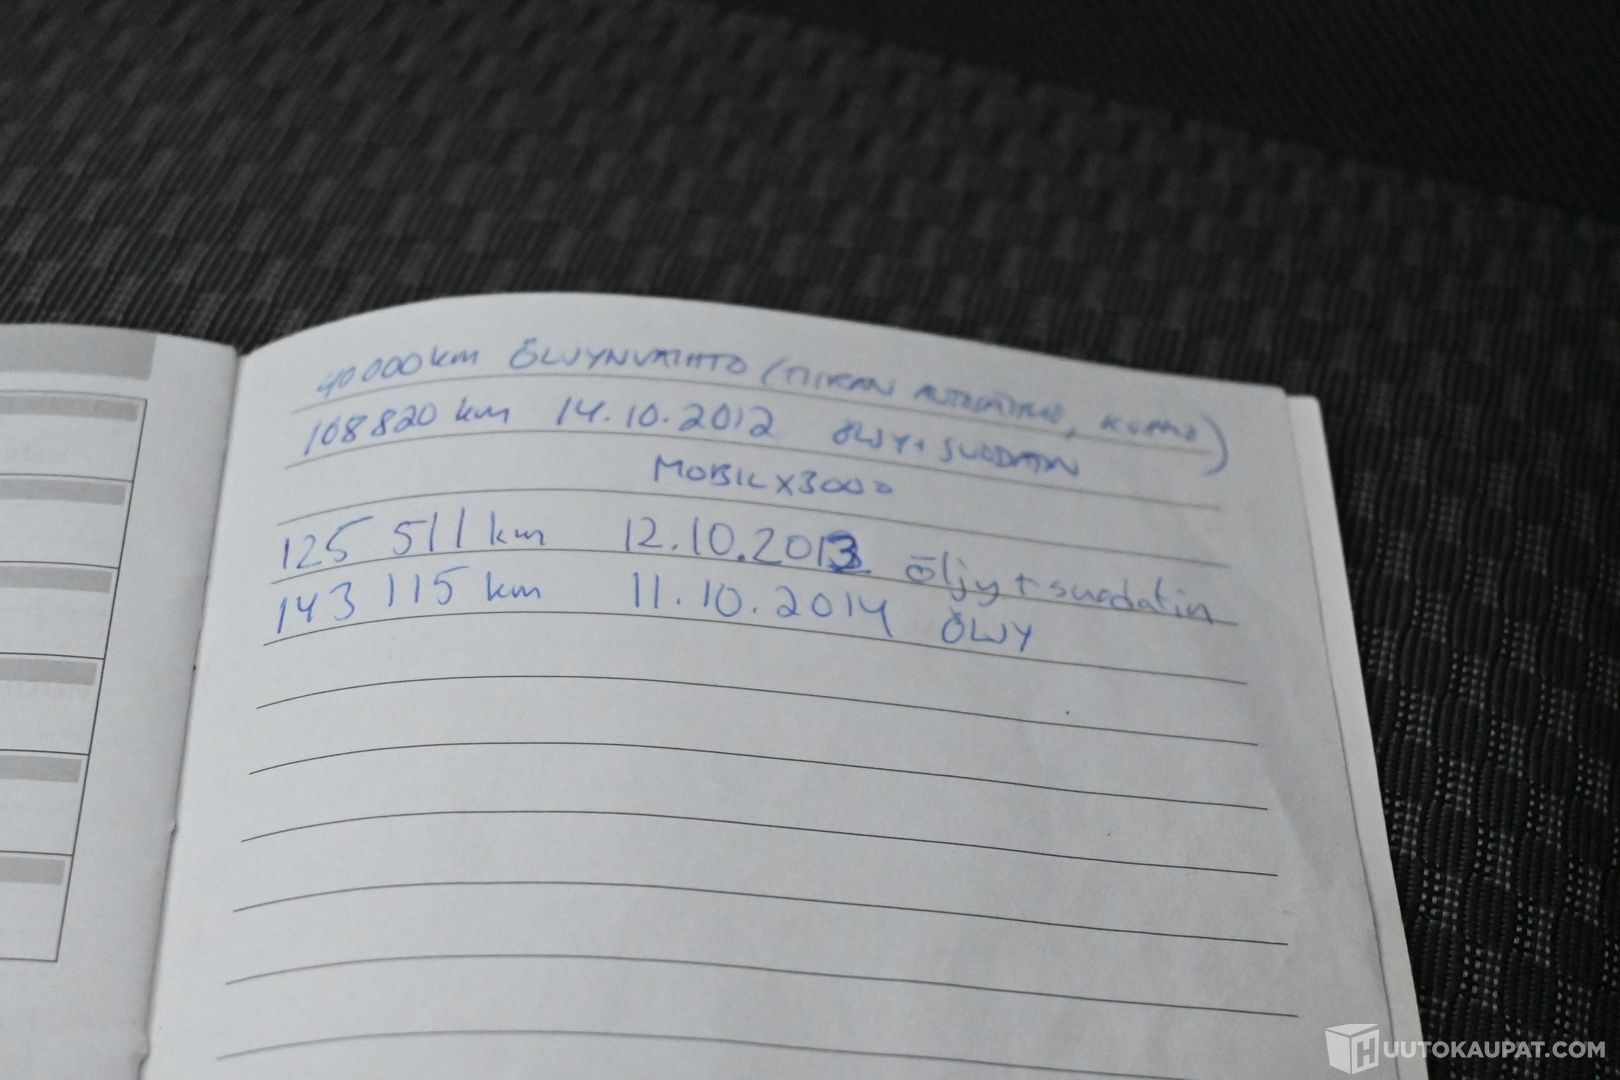 40 000 km ÖLJYNVAIHTO (TIIRAN KUOPIO)
108 820 km 14.10.2012 ÖLJY + SUODATIN
MOBIL X3000
125 511 km 12.10.2013 öljy + suodatin
143 115 km 11.10.2014 ÖLJY
HUUTOKAUPAT.COM